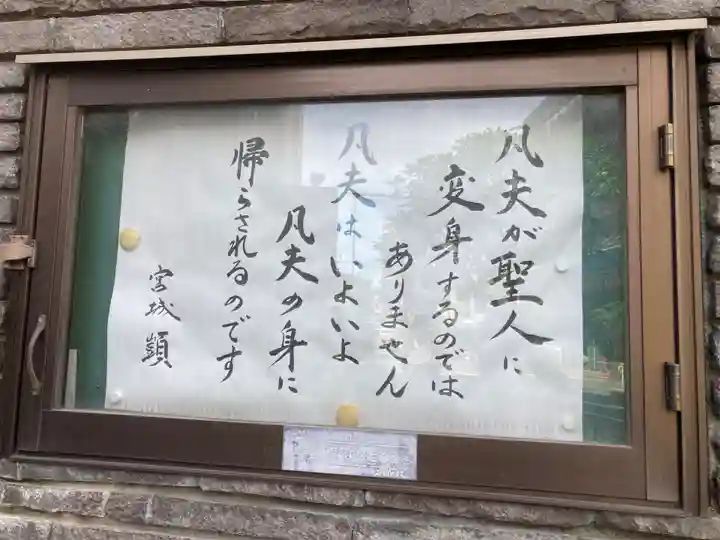 凡夫が聖人に
変身するのでは
ありません
凡夫はいよいよ
凡夫の身に
帰らされるのです
宮城 顗